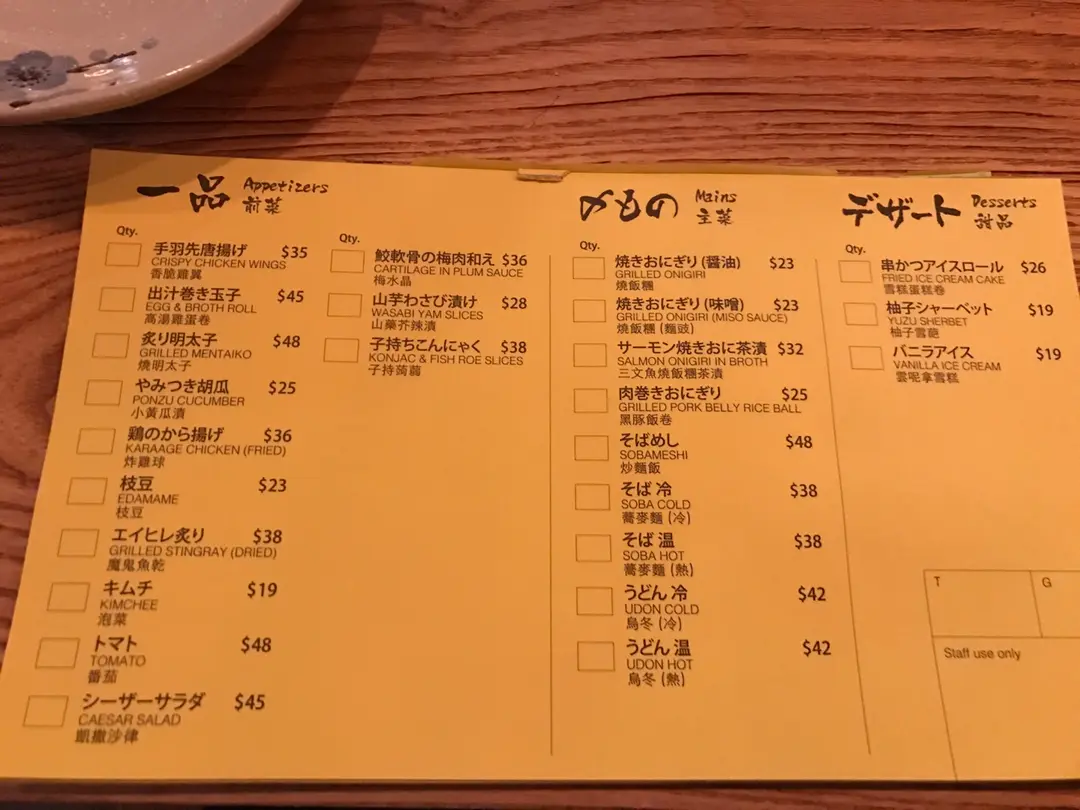 一品 Appetizers
前菜
Qty.
手羽先唐揚げ $35
CRISPY CHICKEN WINGS
香脆雞翼
出汁巻き玉子 $45
EGG & BROTH ROLL
高湯雞蛋卷
炙り明太子 $48
GRILLED MENTAIKO
燒明太子
やみつき胡瓜 $25
PONZU CUCUMBER
小黃瓜漬
鶏のから揚げ $36
KARAAGE CHICKEN (FRIED)
炸雞球
枝豆 $23
EDAMAME
枝豆
エイヒレ炙り $38
GRILLED STINGRAY (DRIED)
魔鬼魚乾
キムチ $19
KIMCHEE
泡菜
トマト $48
TOMATO
番茄
シーザーサラダ $45
CAESAR SALAD
凱撒沙律
Qty.
鮫軟骨の梅肉和え $36
CARTILAGE IN PLUM SAUCE
梅水晶
山芋わさび漬け $28
WASABI YAM SLICES
山藥芥辣漬
子持ちこんにゃく $38
KONJAC & FISH ROE SLICES
子持蒟蒻
〆もの Mains
主菜
Qty.
焼きおにぎり (醤油) $23
GRILLED ONIGIRI
燒飯糰
焼きおにぎり (味噌) $23
GRILLED ONIGIRI (MISO SAUCE)
燒飯糰 (麵豉)
サーモン焼きおに茶漬 $32
SALMON ONIGIRI IN BROTH
三文魚燒飯糰茶漬
肉巻きおにぎり $25
GRILLED PORK BELLY RICE BALL
黑豚飯卷
そばめし $48
SOBAMESHI
炒麵飯
そば 冷 $38
SOBA COLD
蕎麥麵 (冷)
そば 温 $38
SOBA HOT
蕎麥麵 (熱)
うどん 冷 $42
UDON COLD
烏冬 (冷)
うどん 温 $42
UDON HOT
烏冬 (熱)
デザート Desserts
甜品
Qty.
串かつアイスロール $26
FRIED ICE CREAM CAKE
雪糕蛋糕卷
柚子シャーベット $19
YUZU SHERBET
柚子雪葩
バニラアイス $19
VANILLA ICE CREAM
雲呢拿雪糕
T G
Staff use only